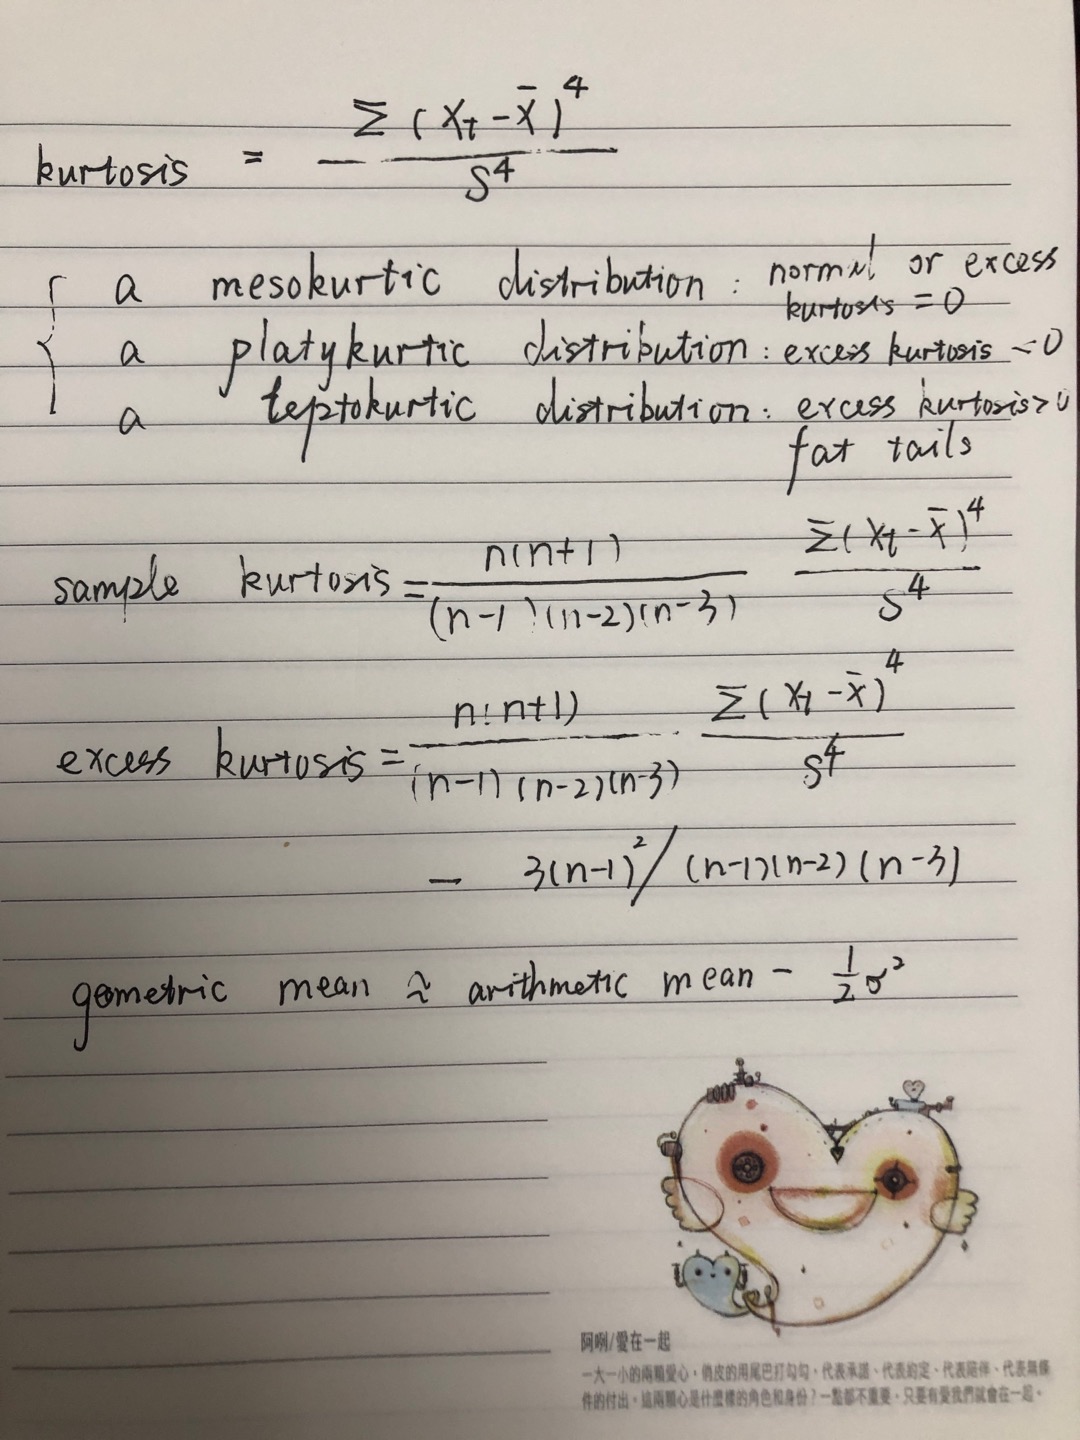 kurtosis = Σ(Xt - x̄)^4 / S^4
{ a mesokurtic distribution : normal or excess kurtosis = 0
a platykurtic distribution : excess kurtosis < 0
a leptokurtic distribution : excess kurtosis > 0
fat tails
sample kurtosis = n(n+1) / (n-1)(n-2)(n-3) Σ(Xt - x̄)^4 / S^4
excess kurtosis = n(n+1) / (n-1)(n-2)(n-3) Σ(Xt - x̄)^4 / S^4
- 3(n-1)^2 / (n-1)(n-2)(n-3)
geometric mean ≈ arithmetic mean - 1/2 σ^2
阿咧/愛在一起
一大一小的兩顆愛心，俏皮的用尾巴打勾勾，代表承諾、代表約定、代表陪伴、代表無條
件的付出。這兩顆心是什麼樣的角色和身份？一點都不重要，只要有愛我們就會在一起。